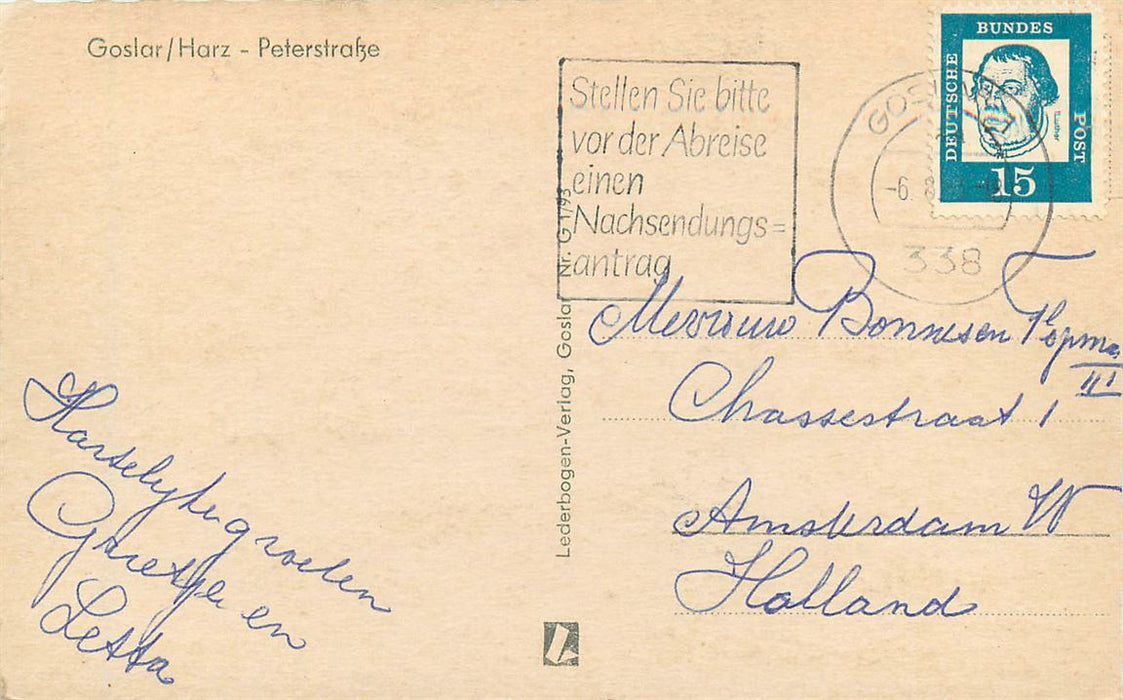 Goslar/Harz - Peterstraße
Stellen Sie bitte
vor der Abreise
einen
Nachsendungs=
antrag
DEUTSCHE
BUNDES
POST
Luther
15
GOSLAR
-6.
338
Lederbogen-Verlag, Goslar Nr. G 1/93
Mevrouw Bonnesen Popma
III
Chassestraat 1
Amsterdam W
Holland
Hartelyke groeten
Greetje en
Letta